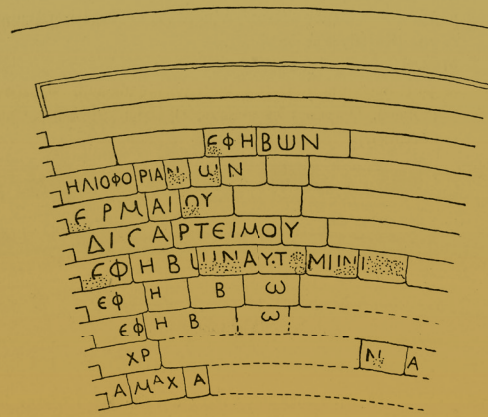 ΕΦΗΒΩΝ
ΗΛΙΟΦΟΡΙΑΝΩΝ
ΕΡΜΑΙΟΥ
ΔΙϹΑΡΤΕΙΜΟΥ
ΕΦΗΒ
ΕΦΗΒΩ
ΕΦΗΒΩ
ΧΡ Ν Α
ΑΜΑΧΑ